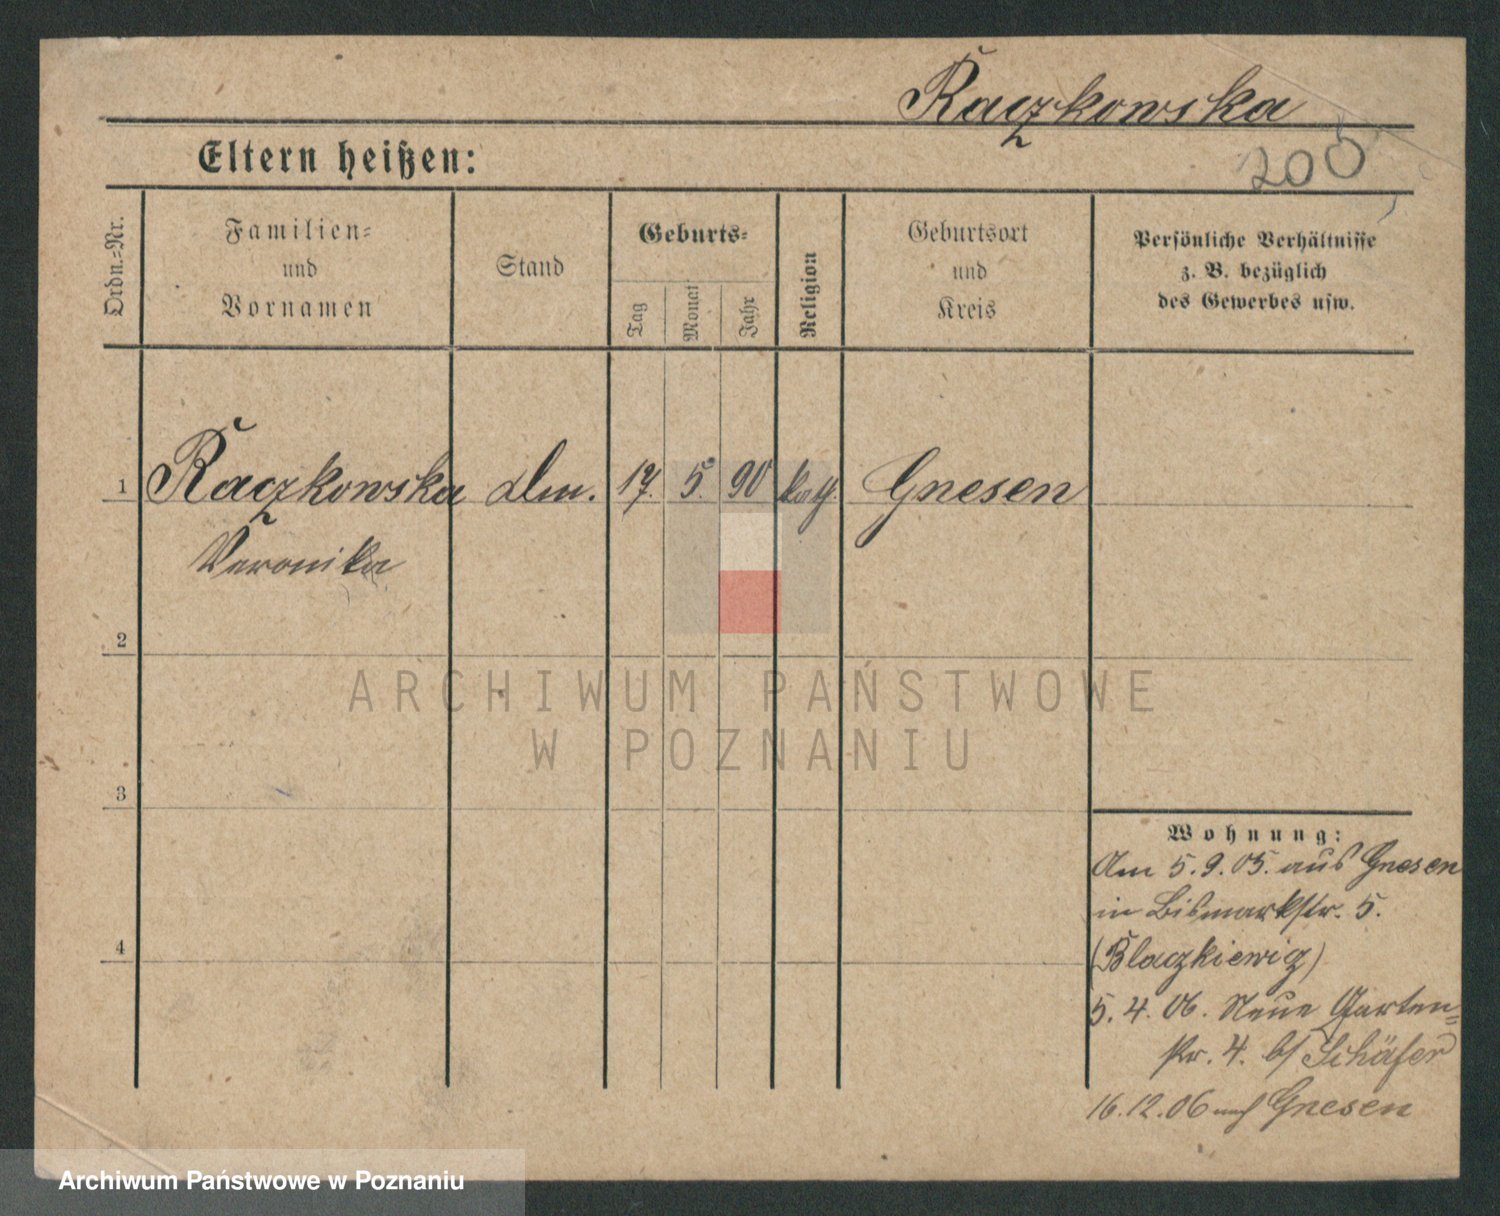 Raczkowska
Eltern heißen:
200
Ordn.-Nr.
Familien-
und
Vornamen
Stand
Geburts-
Tag
Monat
Jahr
Religion
Geburtsort
und
Kreis
Persönliche Verhältnisse
z. B. bezüglich
des Gewerbes usw.
1 Raczkowska 17. 5. 90 kath. Gnesen
Veronika
2
3
4
ARCHIWUM PAŃSTWOWE
W POZNANIU
Wohnung:
Am 5.9.05. aus Gnesen
in Bismarkstr. 5.
(Blaczkiewicz)
5.4.06. Neue Garten-
str. 4. b/ Schäfer
16.12.06 nach Gnesen
Archiwum Państwowe w Poznaniu